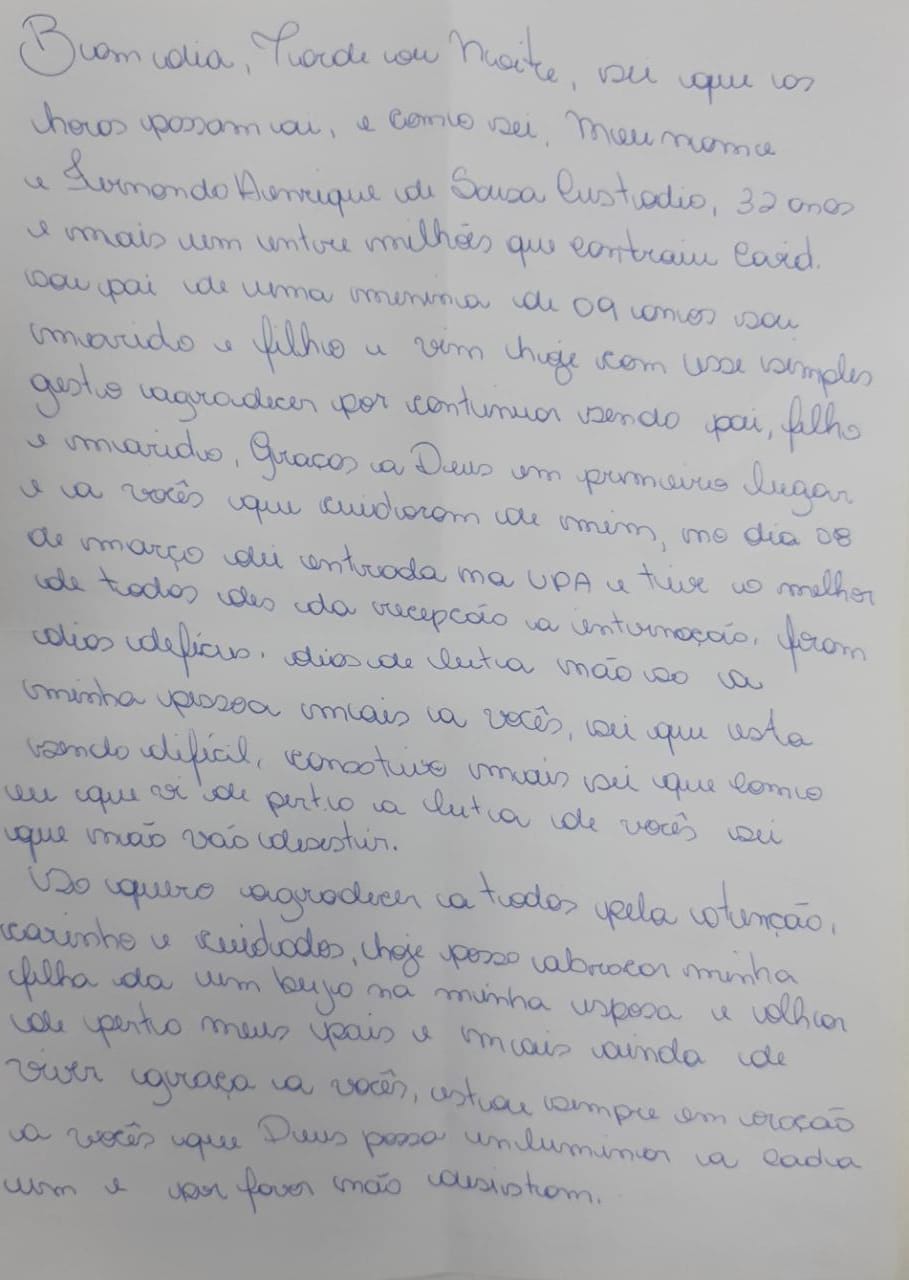 Buom dia, Tarde ou Noite, sei que as
horas possam vai, e como sei, Meu nome
e Fernando Henrique de Sousa Custodio, 32 anos
e mais um entre milhões que contraiu Covid.
sou pai de uma menina de 09 anos sou
marido e filho e vim hoje com esse simples
gesto agradecer por continuar sendo pai, filho
e marido, Graças a Deus em primeiro lugar
e a vocês que cuidaram de mim, no dia 08
de março dei entrada na UPA e tive o melhor
de todos des da recepção a internação, foram
dias defíceis, dias de luta não so a
minha pessoa mais a vocês, sei que esta
sendo difícil, mais sei que como
eu que vi de perto a luta de vocês sei
que não vão desistir.
So quero agradecer a todos pela atenção,
carinho e cuidados, hoje posso abracar minha
filha da um beijo na minha esposa e olhar
de perto meus pais e mais ainda de
viver graça a vocês, estou sempre em oração
a vocês que Deus possa inluminar a cada
um e por favor não desistam.